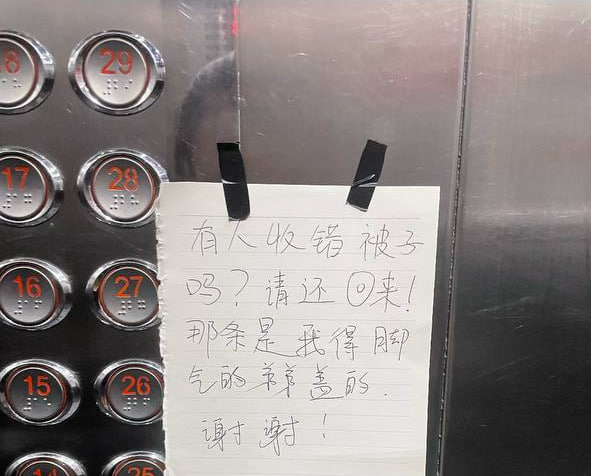 8 29
17 28
16 27
15 26
14 25
有人收错被子
吗？请还回来！
那条是我得脚
气的弟弟盖的.
谢谢！